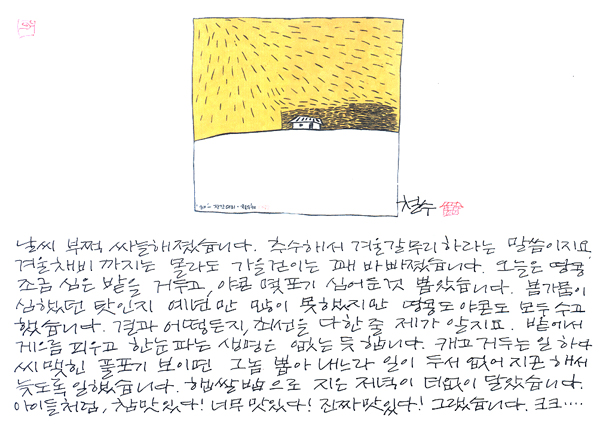 철수
날씨 부쩍 싸늘해졌습니다. 추수해서 겨울갈무리 하라는 말씀이지요.
겨울채비 까지는 몰라도 가을걷이는 꽤 바빠졌습니다. 오늘은 땅콩
조금 심은 밭을 거두고, 야콘 몇포기 심어둔것 뽑았습니다. 봄가뭄이
심했던 탓인지 예년만 많이 못했지만 땅콩도 야콘도 모두 수고
했습니다. 결과 어떻든지, 최선을 다한 줄 제가 알지요. 밭에서
게으름 피우고 한눈 파는 생명은 없는 듯 합니다. 캐고 거두는 일 하다
씨 맺힌 풀포기 보이면 그놈 뽑아 내느라 일이 두서 없어 지곤 해서
늦도록 일했습니다. 햅쌀밥으로 지은 저녁이 더없이 달았습니다.
아이들처럼, 참맛있다! 너무 맛있다! 진짜 맛있다! 그랬습니다. 크크····